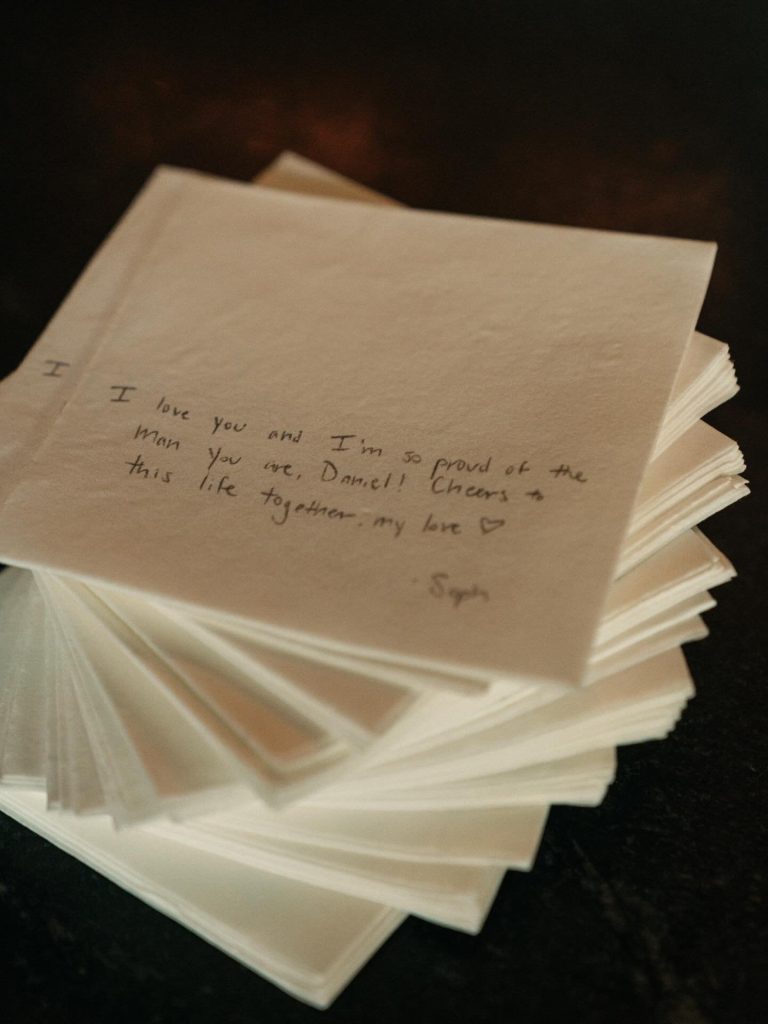 I
I love you and I'm so proud of the
man you are, Daniel! Cheers to
this life together, my love ♡
Soph